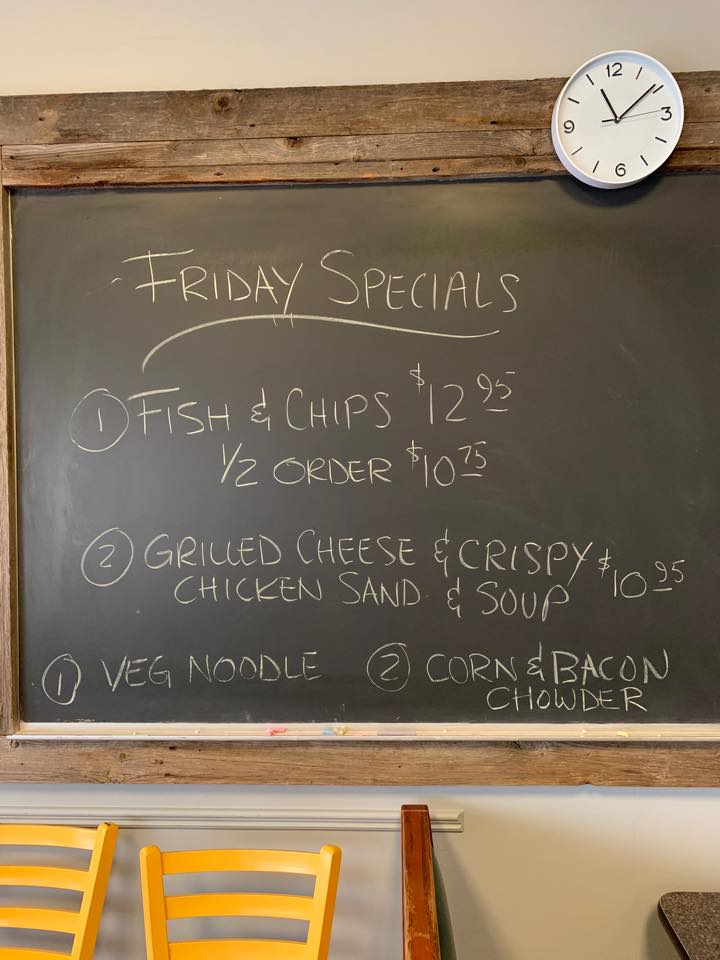 12
3
9
6
FRIDAY SPECIALS
1 FISH & CHIPS $12 95
1/2 ORDER $10 75
2 GRILLED CHEESE & CRISPY $10 95
CHICKEN SAND & SOUP
1 VEG NOODLE 2 CORN & BACON
CHOWDER